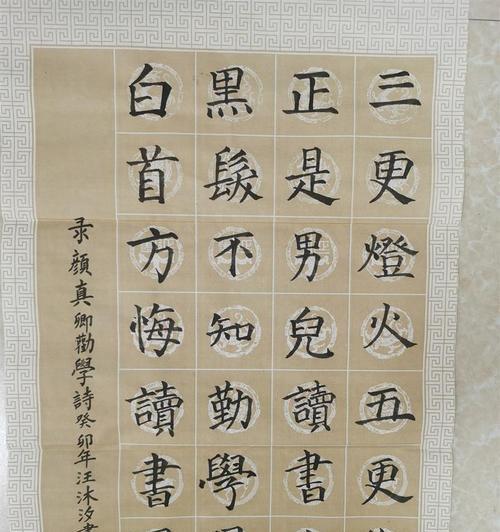 三更燈火五更
正是男兒讀書
黑髮不知勤學
白首方悔讀書
录顔真卿勸學詩癸卯年汪沐汐書